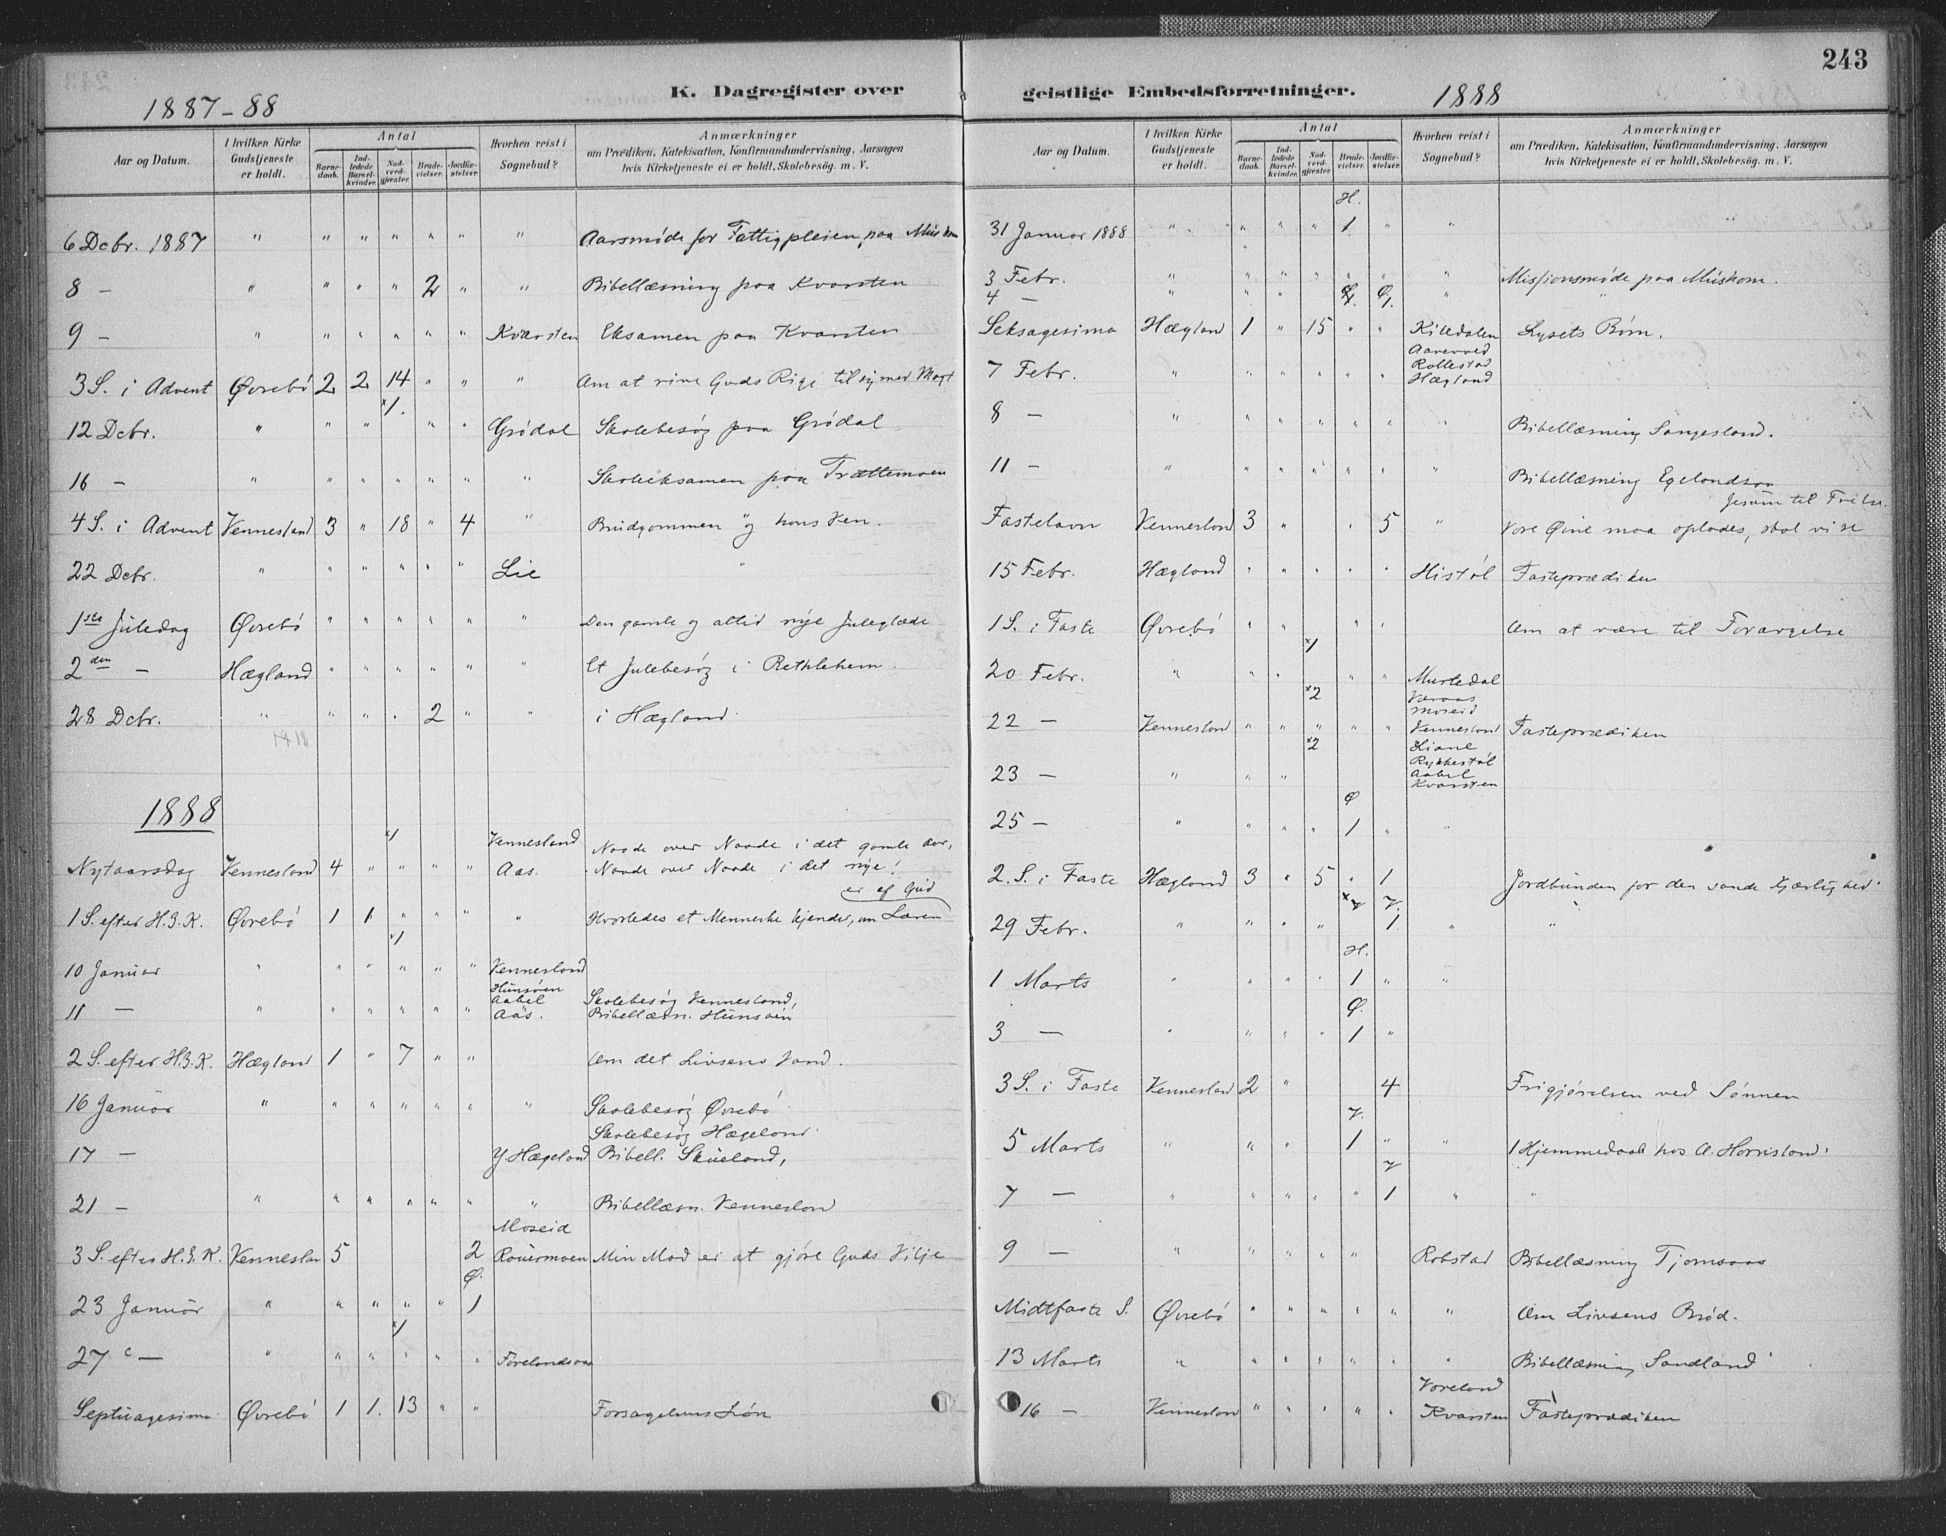 243
1887-88
K. Dagregister over
Aar og Datum.
I hvilken Kirke Gudstjeneste er holdt.
Antal
Barnedaab.
Indledede Barselkvinder.
Nadverdgjæster.
Brudevielser.
Jordfæstelser.
Hvorhen reist i Sognebud?
Anmærkninger
om Prædiken, Katekisation, Konfirmandundervisning, Aarsagen
hvis Kirketjeneste ei er holdt, Skolebesøg. m. V.
6 Decbr. 1887 " " " " " " " Aarsmøde for Fattigpleien paa
8 — " " " " 2 " " Bibellæsning paa Kvarsten
9 — " " " " " " Kvarsten Eksamen paa Kvarsten
3 S. i Advent Øvrebø 2 2 14 " " " Om at rive Guds Rige til sig med Magt
x1.
12 Dcbr. " " " " " Grødal Skolebesøg paa Grødal
16 — " " " " " " " Skoleeksamen paa Trættemoen
4 S. i Advent Vennesland 3 " 18 " 4 " Brudgommen og hans Ven.
22 Dcbr. " " " " " " Lie "
1ste Juledag Øvrebø " " " " " " Den gamle og altid nye Juleglæde
2den — Hægland " " " " " " Et Julebesøg i Bethlehem.
28 Dcbr. " " " " 2 " " i Hægland.
1888
x1 Vennesland Naade over Naade i det gamle Aar,
Nytaarsdag Vennesland 4 " " " " Aas. Naade over Naade i det nye!
er af Gud
1 S. efter H.3.K. Øvrebø 1 1 " " " " Hvorledes et Menneske kjender, om Læren
x1
10 Januar " " " " " " Vennesland
Hunsøen
Aabel Skolebesøg Vennesland,
11 — " " " " " " Aas. Bibellæsn. Hunsøen
2 S. efter H.3.K. Hægland 1 " 7 " " Om det Livsens Vand.
16 Januar " " " " " " " Skolebesøg Øvrebø
Skolebesøg Hægeland
17 — Y Hægeland Bibell. Skueland,
21 — " " " " " " " Bibellæsn. Vennesland
Moseid
3 S. efter H.3.K. Vennesland 5 2 Min Mad er at gjøre Guds Vilje
Ø.
23 Januar " " " " " 1
x1
27 — " " " " " "
Septuagesima Øvrebø 1 1. 13 " " Forsagelsens Løn
geistlige Embedsforretninger.
1888
Aar og Datum.
I hvilken Kirke Gudstjeneste er holdt.
Antal
Barnedaab.
Indledede Barselkvinder.
Nadverdgjæster.
Brudevielser.
Jordfæstelser.
Hvorhen reist i Sognebud?
Anmærkninger
om Prædiken, Katekisation, Konfirmandundervisning, Aarsagen
hvis Kirketjeneste ei er holdt, Skolebesøg. m. V.
H.
31 Januar 1888 " " " " 1. " " "
3 Febr. " " " " " " " Missionsmøde paa
Ø Ø
4 — " " " 1. 1. " "
Seksagesima Hægland 1 " 15 " " Kiledalen Lysets Børn.
Rollestad
7 Febr. " " " " " " Hægland
8 — " " " " " " " Bibellæsning Sangesland.
11 — " " " " " " " Bibellæsning
Jesum til Frelse.
Fastelavn Vennesland 3 " " 5 " Vore Øine maa oplades, skal vi se
15 Febr. Hægland " " " " " Histøl Fasteprædiken
1 S. i Faste Øvrebø " " " " Om at være til Forargelse
x1
20 Febr. " " " " "
x2
Moseid
22 — Vennesland " " " " " Vennesland Fasteprædiken
x2 Liane
Rykkestøl
23 — " " " Aabel
Kvarsten
Ø
25 — " " " " 1 " "
2. S. i Faste Hægland 3 " 5 " 1 Jordbunden for den sande Kjærlighed.
V.
29 Febr. " " " " 1. " "
H.
1 Marts " " " " 1 " "
Ø.
3 — " " " " 1 "
3 S. i Faste Vennesland 2 " 4 Frigjørelsen ved Sønnen
V.
5 Marts " " " 1 " " 1 Hjemmedaab hos
V
7 — " " " " " 1 " "
9 — " " " " " Robstad Bibellæsning
Midtfaste S. Øvrebø " " " " " " Om Livsens Brød.
13 Marts " " " " " " " Bibellæsning Sandland
Voreland
16 — Vennesland " " " " " Kvarsten Fasteprædiken